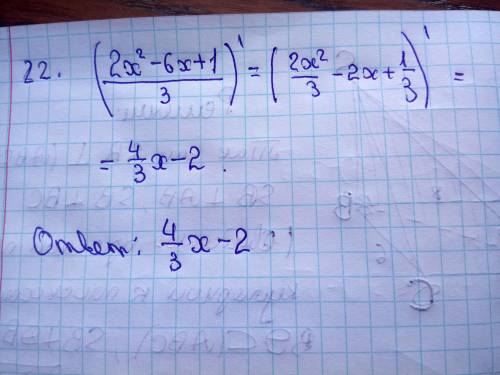 22. ((2x²-6x+1)/3)' = (2x²/3 - 2x + 1/3)' =
= 4/3 x - 2.
Ответ: 4/3 x - 2